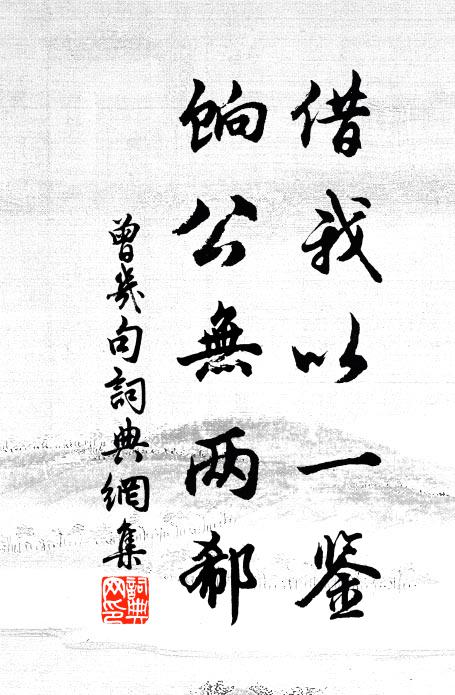 借我以一鉴
餉公無两郗
曾幾句詞典網集
詞典